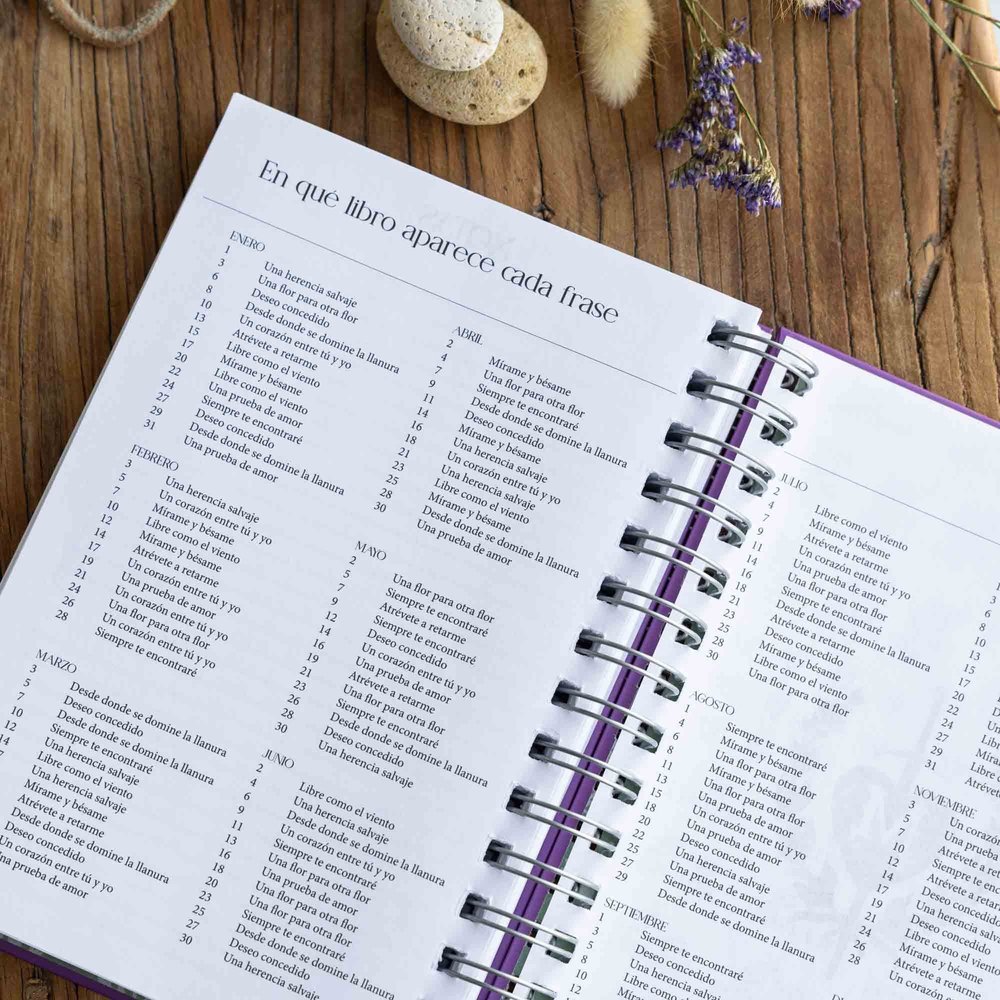 En qué libro aparece cada frase
ENERO
1 Una herencia salvaje
3 Una flor para otra flor
6 Deseo concedido
8 Desde donde se domine la llanura
10 Un corazón entre tú y yo
13 Atrévete a retarme
15 Libre como el viento
17 Mírame y bésame
20 Libre como el viento
22 Una prueba de amor
24 Siempre te encontraré
27 Deseo concedido
29 Desde donde se domine la llanura
31 Una prueba de amor
FEBRERO
3 Una herencia salvaje
5 Un corazón entre tú y yo
7 Mírame y bésame
10 Libre como el viento
12 Mírame y bésame
14 Atrévete a retarme
17 Un corazón entre tú y yo
19 Una prueba de amor
21 Un corazón entre tú y yo
24 Una flor para otra flor
26 Un corazón entre tú y yo
28 Siempre te encontraré
MARZO
3 Desde donde se domine la llanura
5 Deseo concedido
7 Desde donde se domine la llanura
10 Siempre te encontraré
12 Una herencia salvaje
14 Libre como el viento
Una herencia salvaje
Mírame y bésame
Atrévete a retarme
Desde donde se domine la llanura
Deseo concedido
Un corazón entre tú y yo
Una prueba de amor
ABRIL
2 Mírame y bésame
4 Una flor para otra flor
7 Siempre te encontraré
9 Desde donde se domine la llanura
11 Deseo concedido
14 Mírame y bésame
16 Una herencia salvaje
18 Un corazón entre tú y yo
21 Una herencia salvaje
23 Libre como el viento
25 Mírame y bésame
28 Desde donde se domine la llanura
30 Una prueba de amor
MAYO
2 Una flor para otra flor
5 Siempre te encontraré
7 Atrévete a retarme
9 Siempre te encontraré
12 Deseo concedido
14 Un corazón entre tú y yo
16 Una prueba de amor
19 Atrévete a retarme
21 Una flor para otra flor
23 Siempre te encontraré
26 Desde donde se domine la llanura
28 Deseo concedido
30 Una herencia salvaje
JUNIO
2 Libre como el viento
4 Una herencia salvaje
6 Desde donde se domine la llanura
9 Un corazón entre tú y yo
11 Siempre te encontraré
13 Una flor para otra flor
16 Una prueba de amor
18 Una flor para otra flor
20 Una flor para otra flor
23 Siempre te encontraré
25 Desde donde se domine la llanura
27 Deseo concedido
30 Una herencia salvaje
JULIO
2 Libre como el viento
4 Mírame y bésame
7 Atrévete a retarme
9 Un corazón entre tú y yo
11 Una prueba de amor
14 Una flor para otra flor
16 Siempre te encontraré
18 Desde donde se domine la llanura
21 Atrévete a retarme
23 Deseo concedido
25 Mírame y bésame
28 Libre como el viento
30 Una flor para otra flor
AGOSTO
1 Siempre te encontraré
4 Mírame y bésame
6 Una flor para otra flor
8 Mírame y bésame
11 Una flor para otra flor
13 Una prueba de amor
15 Un corazón entre tú y yo
18 Una prueba de amor
20 Deseo concedido
22 Una herencia salvaje
25 Siempre te encontraré
27 Una prueba de amor
29 Desde donde se domine la llanura
SEPTIEMBRE
1 Siempre te encontraré
3 Una herencia salvaje
5 Libre como el
8
3
6
8
10
13
15
17
20
22
24
27
29
31
NOVIEMBRE
3 Un
5 Una prueba
7 Atrévete a
10 Siempre te
12 Atrévete a
14 Una herencia
17 Deseo concedido
19 Libre como el
21 Mírame y bésame
24 Atrévete a retarme
26 Una herencia
28